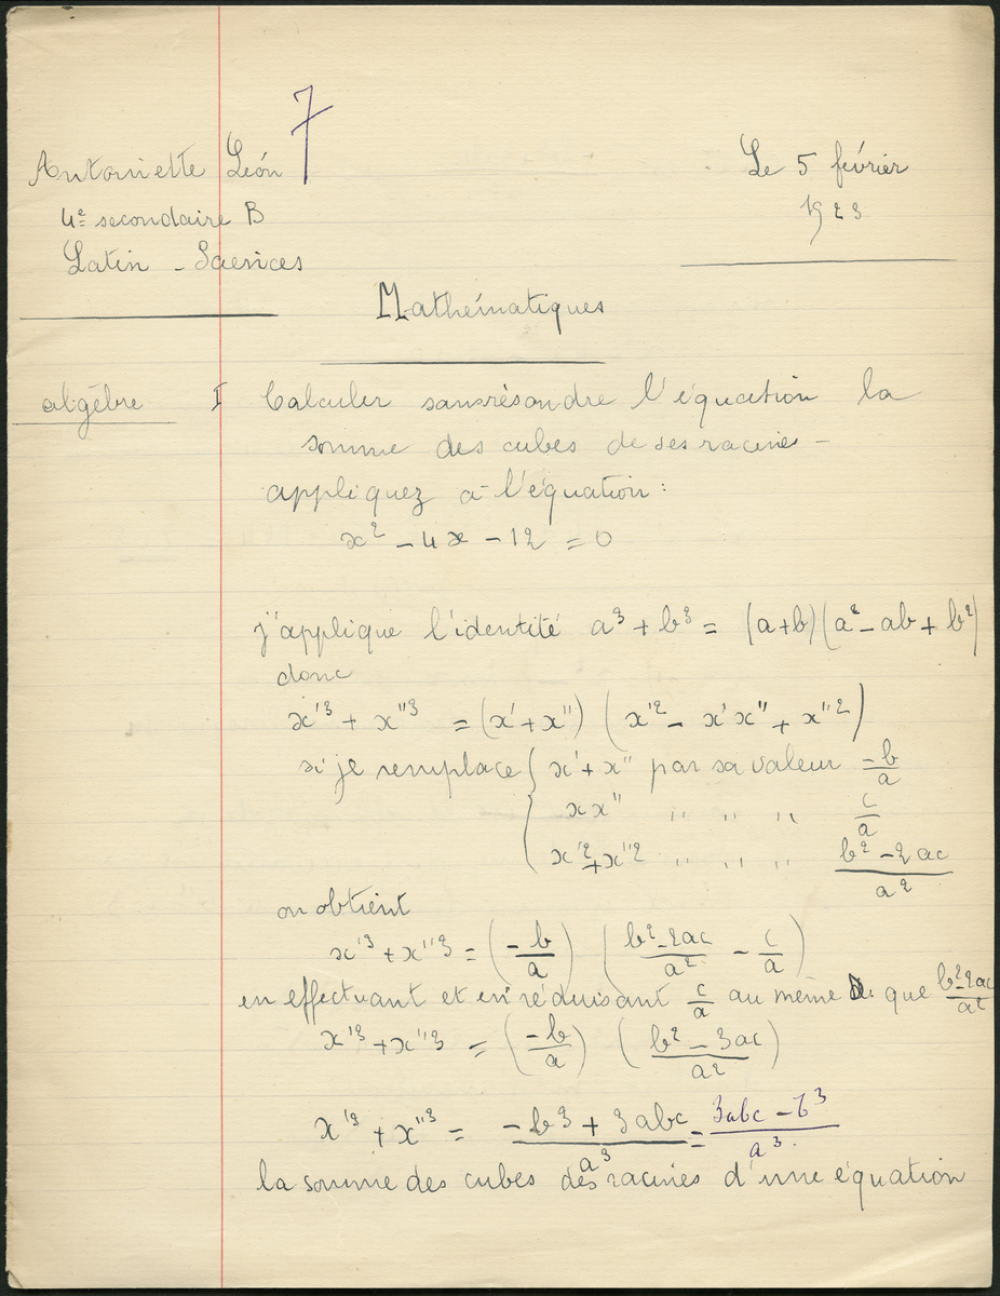 7
Antoinette León
Le 5 février
1923
4e secondaire B
Latin - Sciences
Mathématiques
algèbre I Calculer sans résoudre l'équation la
somme des cubes de ses racines -
appliquez à l'équation :
x² - 4x - 12 = 0
j'applique l'identité a³ + b³ = (a+b)(a² - ab + b²)
donc
x'³ + x''³ = (x' + x'') (x'² - x'x'' + x''²)
si je remplace { x' + x'' par sa valeur -b/a
x x'' " " " c/a
x'² + x''² " " " (b² - 2ac)/a²
on obtient
x'³ + x''³ = (-b/a) ((b² - 2ac)/a² - c/a)
en effectuant et en réduisant c/a au même D. que (b² - 2ac)/a²
x'³ + x''³ = (-b/a) ((b² - 3ac)/a²)
x'³ + x''³ = (-b³ + 3abc)/a³ = (3abc - b³)/a³.
la somme des cubes des racines d'une équation